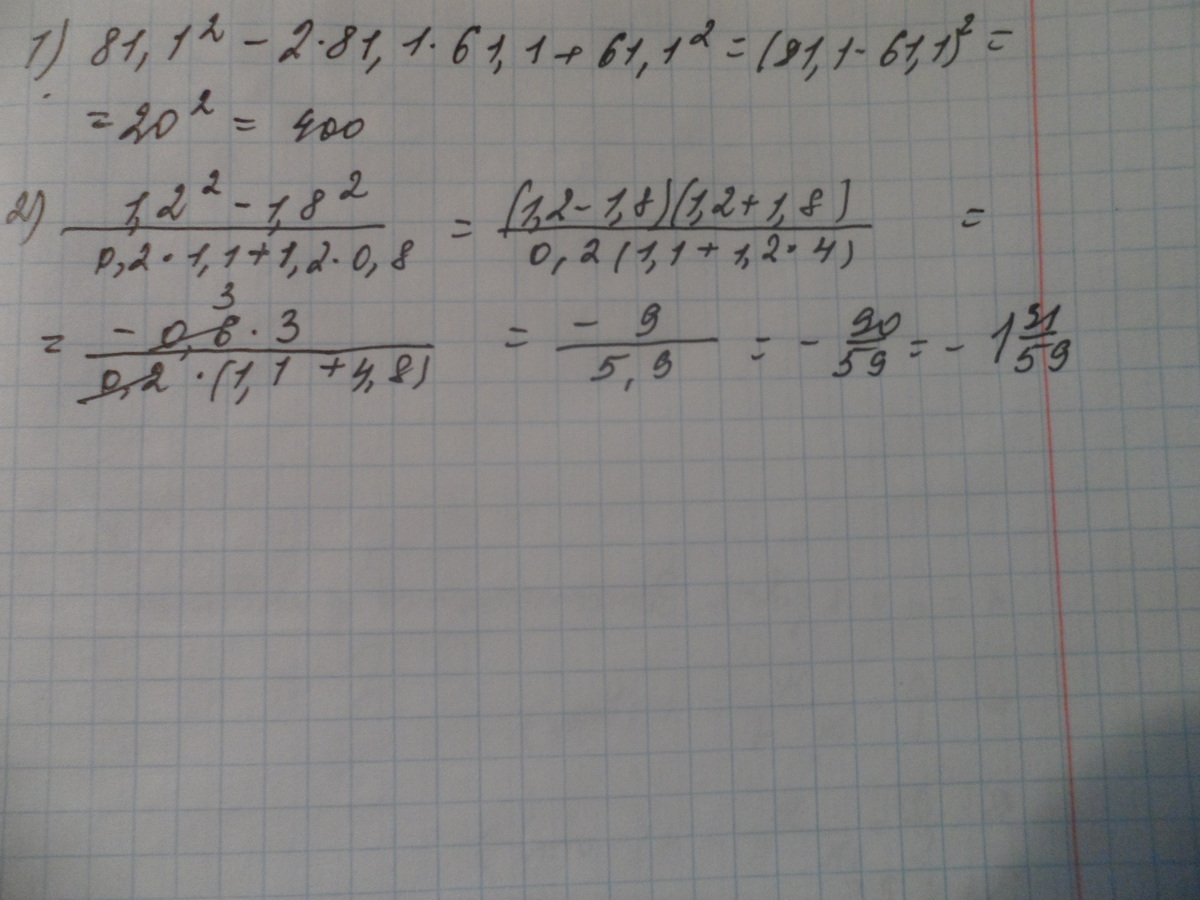 1) 81,1² - 2·81,1·61,1 + 61,1² = (81,1 - 61,1)² =
= 20² = 400
2) (1,2² - 1,8²)/(0,2·1,1 + 1,2·0,8) = ((1,2 - 1,8)(1,2 + 1,8))/(0,2(1,1 + 1,2·4)) =
3
= (-0,6·3)/(0,2·(1,1 + 4,8)) = (-9)/(5,9) = -90/59 = -1 31/59